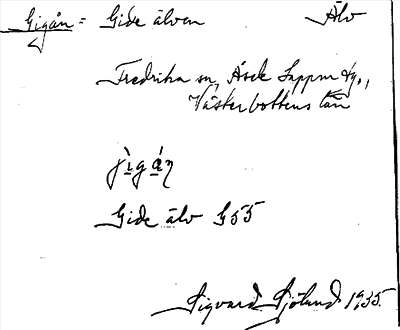 Gigån = Gide älven Älv
Fredrika sn, Åsele Lappm tg.,
Västerbottens län
Gide älv G55
Sigvard Sjölund 1935.